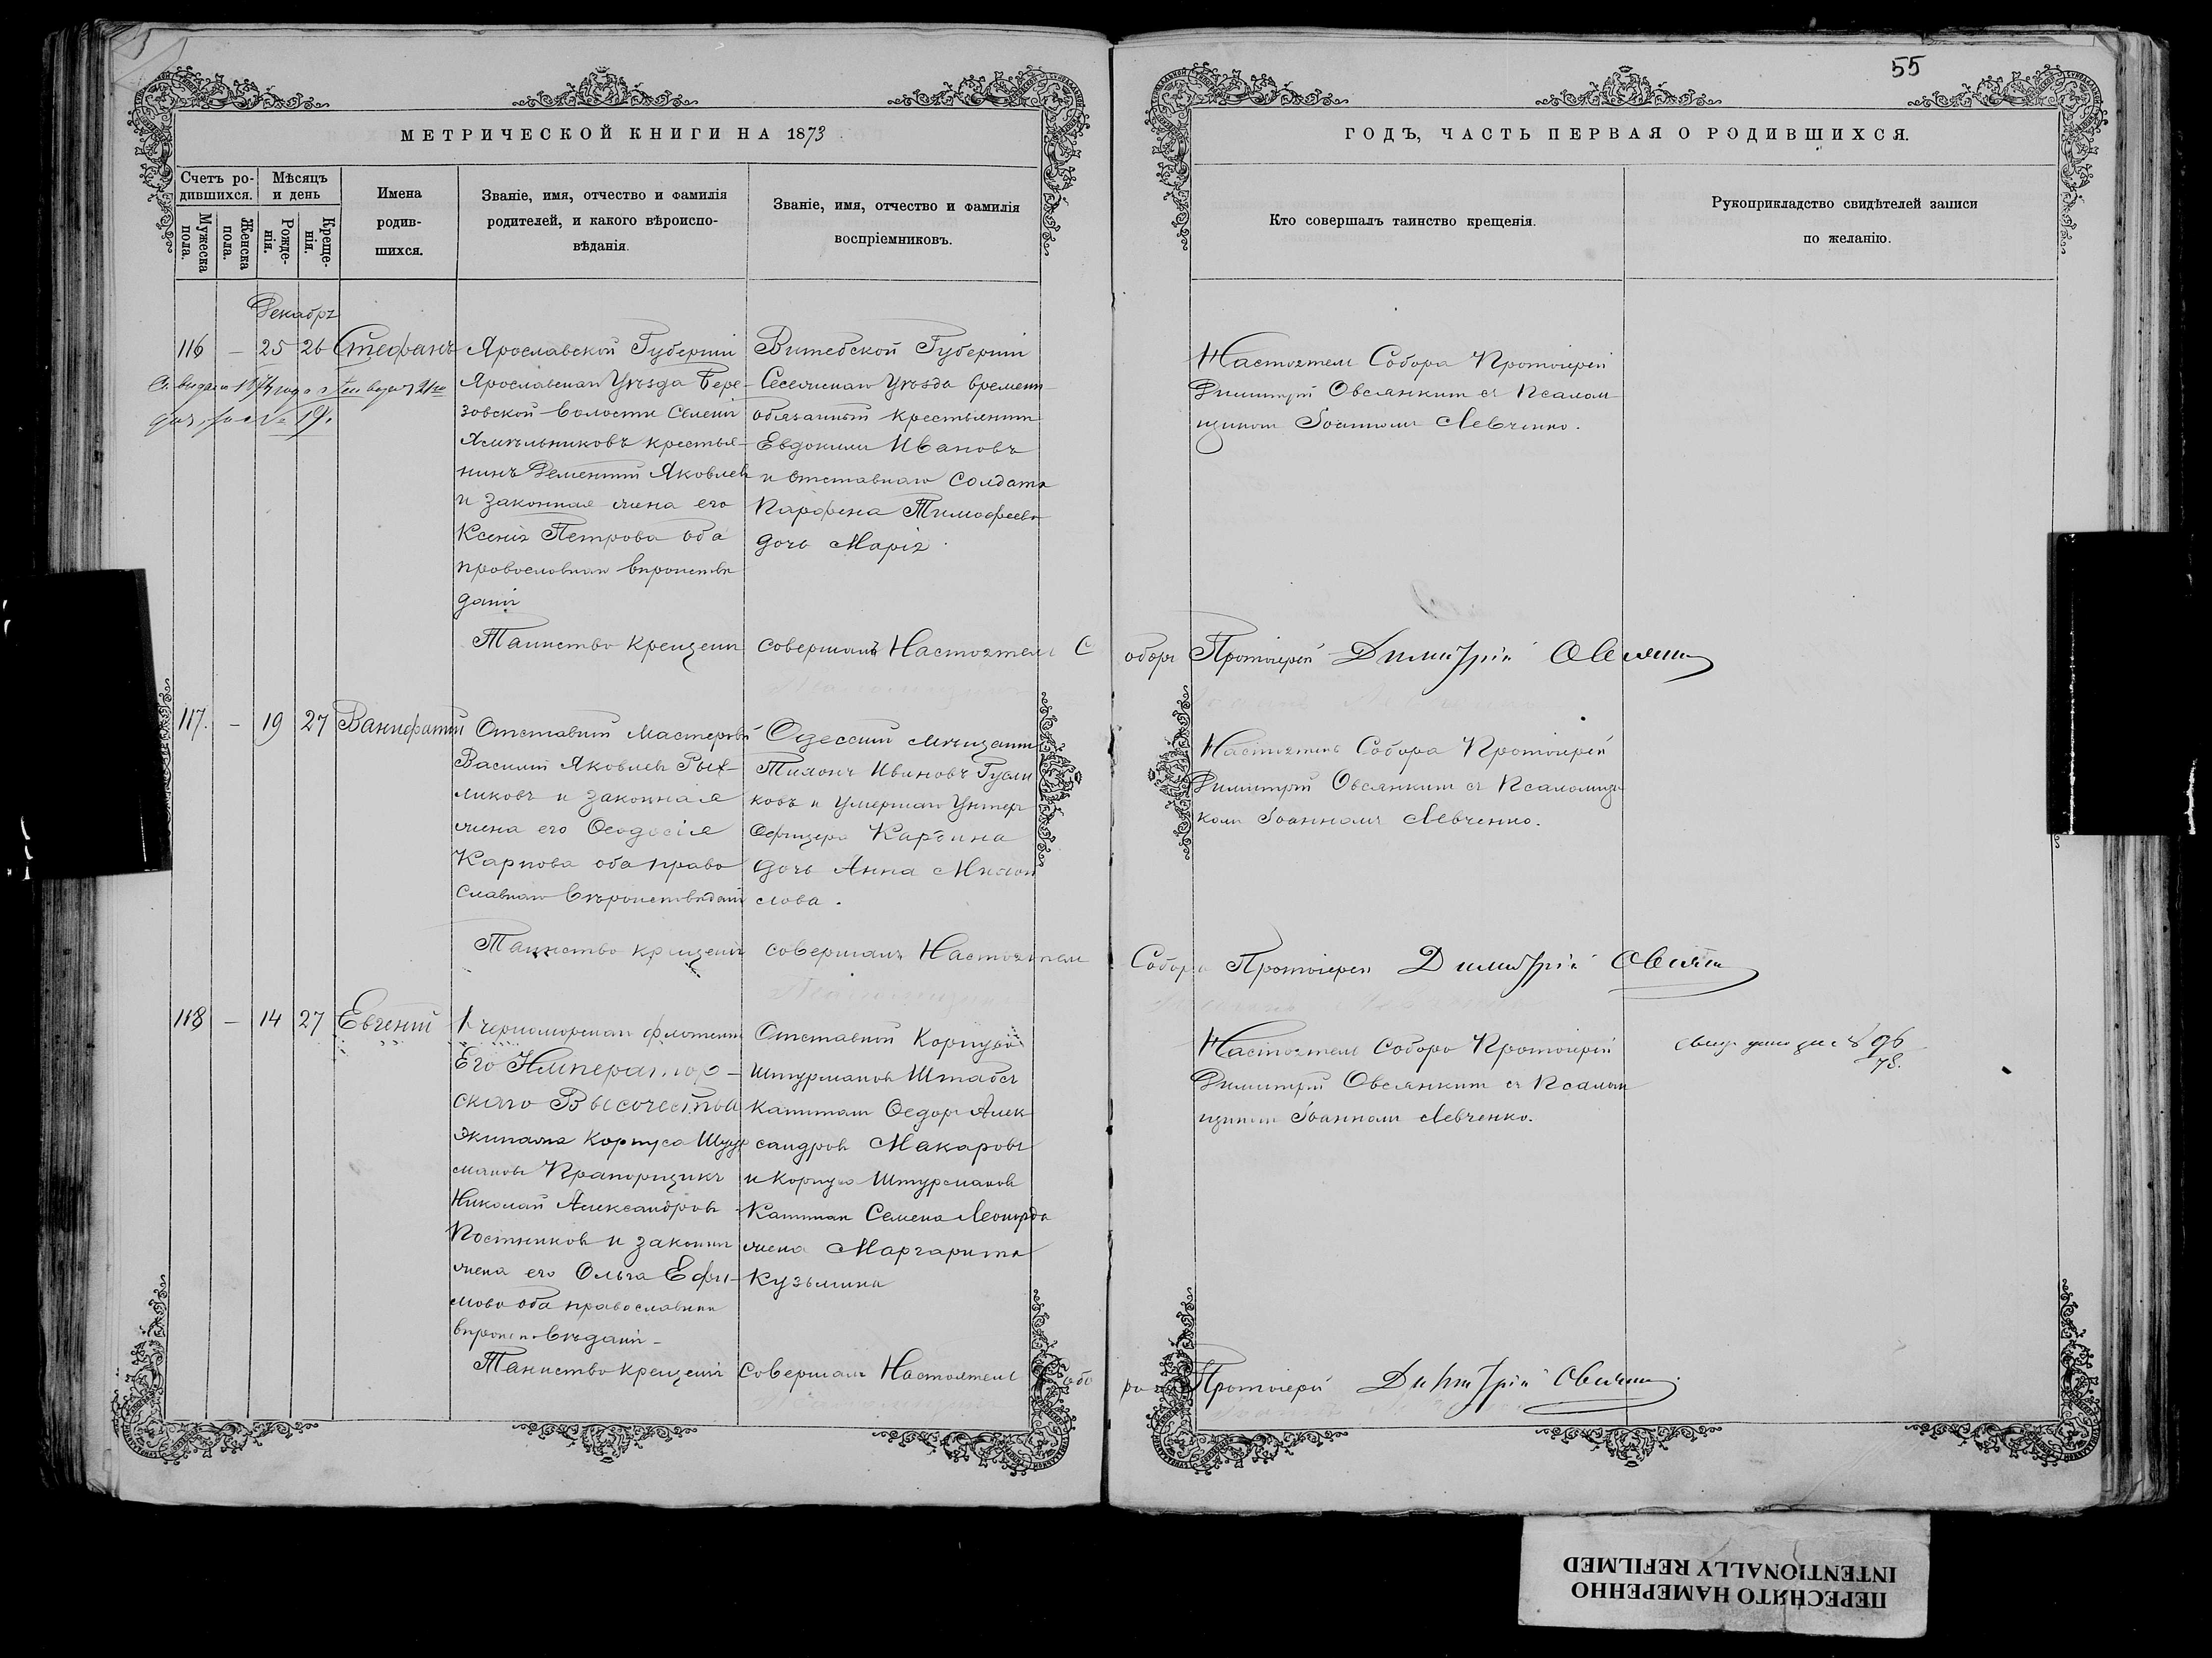 55
МЕТРИЧЕСКОЙ КНИГИ НА 1873
ГОДЪ, ЧАСТЬ ПЕРВАЯ О РОДИВШИХСЯ.
Счетъ ро-
дившихся.
Мужеска
пола.
Женска
пола.
Мѣсяцъ
и день
Рожде-
нія.
Креще-
нія.
Имена
родив-
шихся.
Званіе, имя, отчество и фамилія
родителей, и какого вѣроиспо-
вѣданія.
Званіе, имя, отчество и фамилія
воспріемниковъ.
Кто совершалъ таинство крещенія.
Рукоприкладство свидѣтелей записи
по желанію.
Декабрь
116 — 25 26 Стефанъ
Ярославской Губерніи
Ярославскаго Уѣзда Бере-
зовской волости Селенія
крестья-
нинъ Дементій Яковлевъ
и законная жена его
Ксенія Петрова оба
православнаго вѣроисповѣ
данія
Витебской Губерніи
уѣзда временно
обязанный крестьянинъ
Евдокимъ Ивановъ
и отставнаго солдата
Парфена Тимофеева
дочь Марія.
Настоятель Собора Протоіерей
Димитрій Овсянкинъ съ Псалом
щикомъ Іоанномъ Левченко.
Таинство крещенія совершалъ Настоятель Собора Протоіерей Димитрій Овсянкинъ
117. — 19 27 Вонифатій
Отставной мастеровой
Василій Яковлевъ Рых-
ликовъ и законная
жена его Ѳеодосія
Карпова оба право
славнаго вѣроисповѣданія
Одесскій мѣщанинъ
Тихонъ Ивановъ
ковъ и умершаго Унтеръ
Офицера
дочь Анна
лова.
Настоятель Собора Протоіерей
Димитрій Овсянкинъ съ Псаломщи
комъ Іоанномъ Левченко.
Таинство крещенія совершалъ Настоятель Собора Протоіерей Димитрій Овсянкинъ
118 — 14 27 Евгеній
1 черноморскаго флотскаго
Его Император-
скаго Высочества
экипажа Корпуса Штур
мановъ Прапорщикъ
Николай Александровъ
Постниковъ и законная
жена его Ольга Ефи-
мова оба православнаго
вѣроисповѣданія
Отставной Корпуса
Штурмановъ Штабсъ
Капитанъ Ѳедоръ Алек
сандровъ Макаровъ
и Корпуса Штурмановъ
Капитана Семена Леонарда
жена Маргарита
Кузьмина
Настоятель Собора Протоіерей
Димитрій Овсянкинъ съ Псалом
щикомъ Іоанномъ Левченко.
96
78.
Таинство крещенія совершалъ Настоятель Собора Протоіерей Димитрій Овсянкинъ
ПЕРЕСНЯТО НАМЕРЕННО
INTENTIONALLY REFILMED